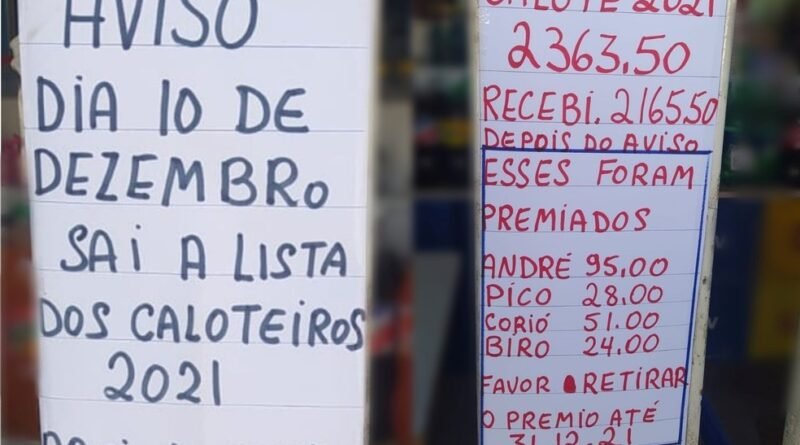 AVISO
DIA 10 DE
DEZEMBRO
SAI A LISTA
DOS CALOTEIROS
2021
CALOTE 2021
2363,50
RECEBI. 2165,50
DEPOIS DO AVISO
ESSES FORAM
PREMIADOS
ANDRÉ 95.00
PICO 28.00
CORIÓ 51.00
BIRO 24.00
FAVOR RETIRAR
O PREMIO ATÉ
31.12.21